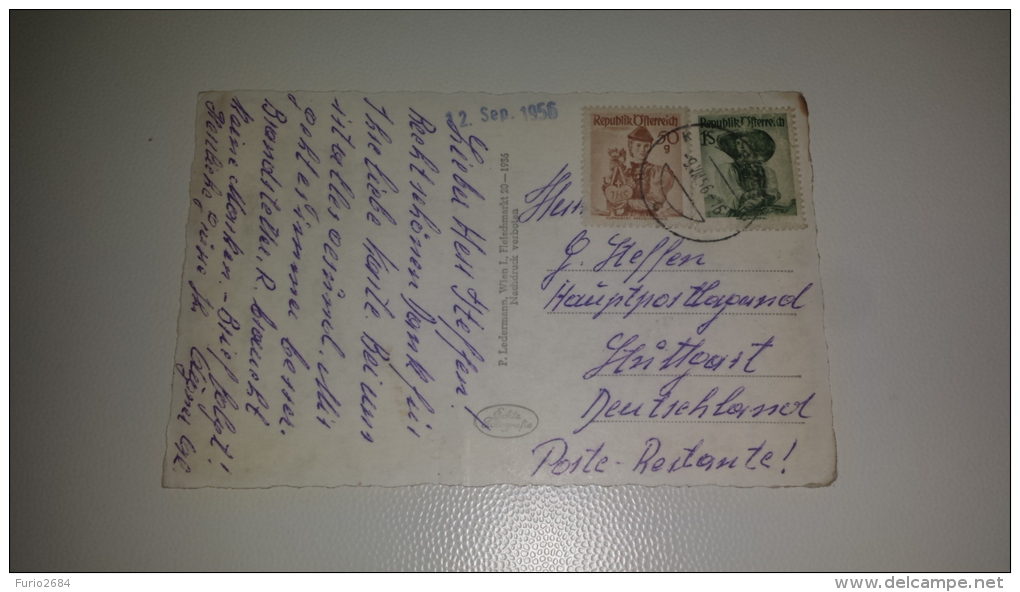 12. Sep. 1956
Lieber Herr Steffen!
Recht schönen Dank für
Ihre liebe Karte. Bei uns
ist alles gesund. Mir
geht es immer besser.
Brandstetter R. braucht
keine Marken. - Brief folgt!
Herzliche Grüsse Ihr
P. Ledermann, Wien I., Fleischmarkt 20 - 1956
Nachdruck verboten
Echte
Photographie
Republik Österreich
50
g
Republik Österreich
1S
Herrn
G. Steffen
Hauptpostlagernd
Stuttgart
Deutschland
Poste-Restante!
Furio2684
www.delcampe.net